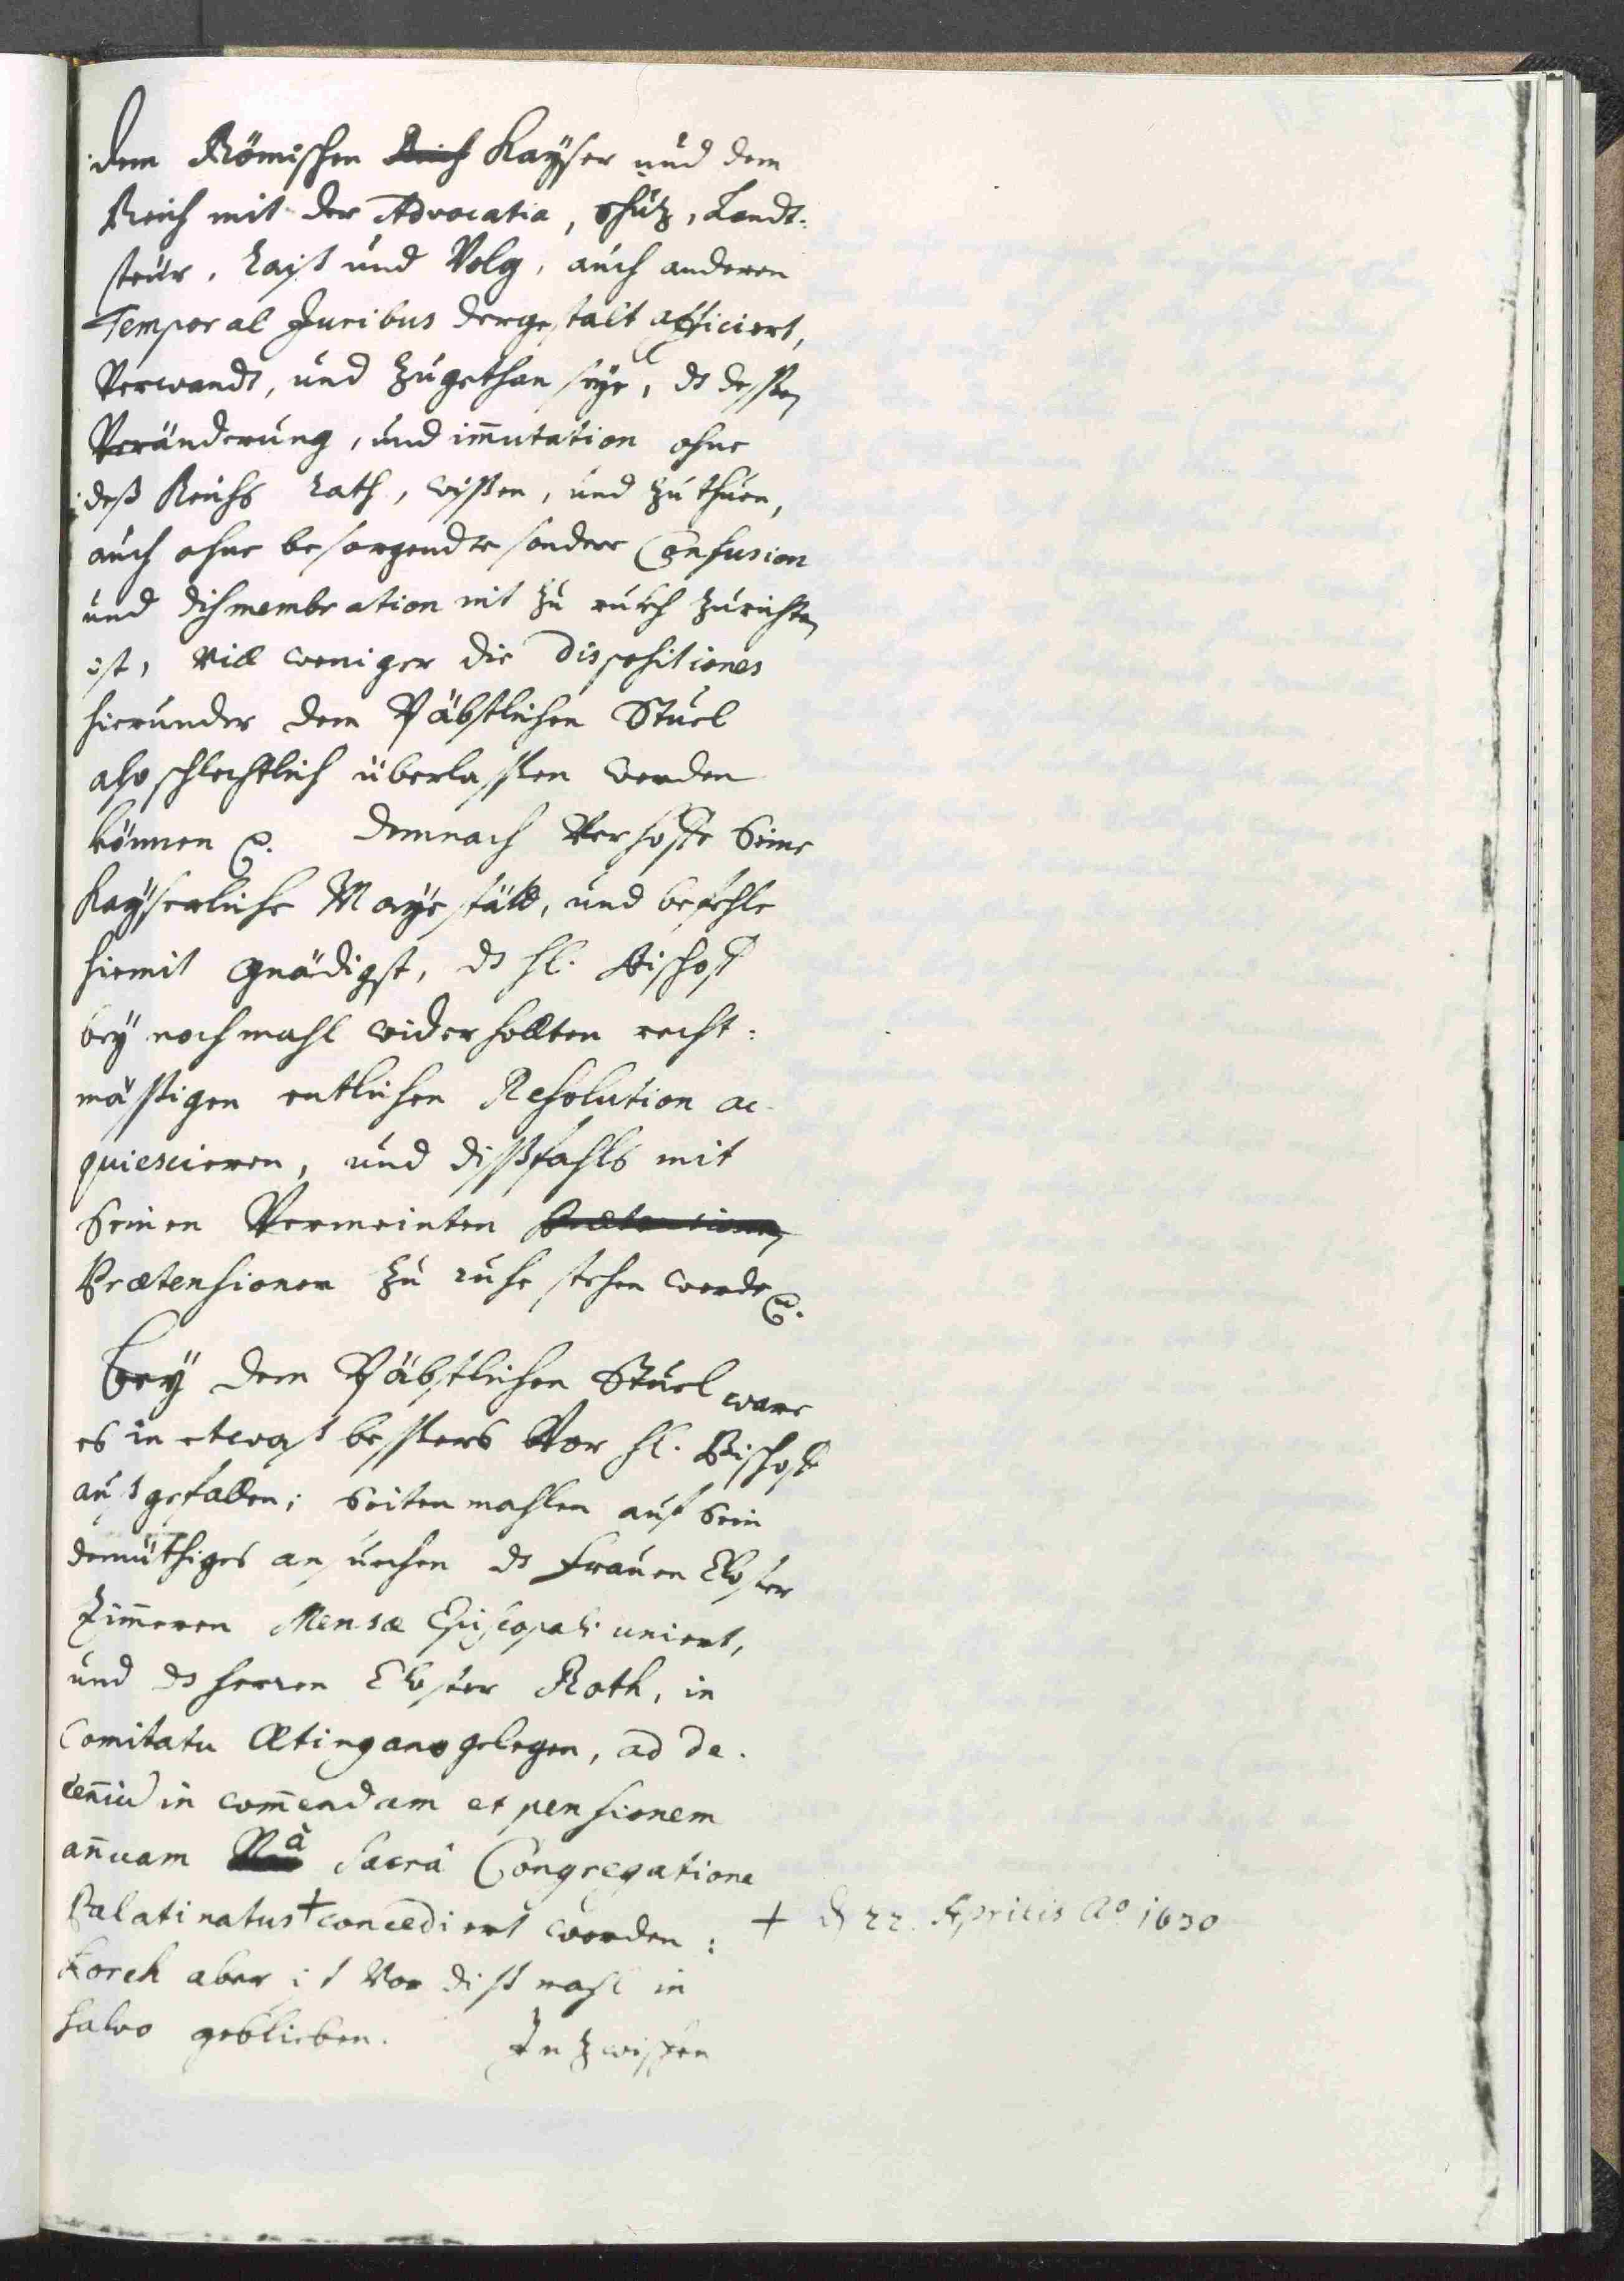 dem Römischen Reich Kaÿser und dem
Reich mit der Advocatia, schuz, Landt-
steür, Raiß und Volg, auch anderen
Temporal Juribus dergestalt afficiert,
Verwandt, und zugethan seÿe, ds dessen
Veränderung, und im̄utation ohne
deß Reichs Rath, wißen, und zuthuen,
auch ohne besorgendte sondere Confusion
und dismembration nit zu zurichten
ist, vill weniger die Dispositiones
hierunder dem Päbstlichen Stuel
also schlechtlich überlassen werden
können . Demnach Verhoffe Seine
Kaÿserliche Mayestätt, und befehle
hiemit gnädigst, ds hl. Bischoff
beÿ nochmahl widerhollten recht-
mässigen entlichen Resolution ac-
quiescieren, und dißfahls mit
Seinen Vermeinten Prætensionen
Prætensionen zu ruhe stehen werde .
Beÿ dem Päbstlichen Stuel ware
es in etwaß bessers Vor hl. Bischoff
außgefallen; Seitenmahlen auf Sein
demüthiges ansuechen ds Frauen Closter
Zim̄eren Mensæ Episcopali uniert,
und ds Herren Closter Roth, in
Comitatu Œtingano gelegen, ad de-
cen̄iū in com̄endam et pensionem
an̄uam à Sacrâ Congregatione
Palatinatus + concediert worden:
Lorch aber ist Vor dißmahl in
salvo geblieben. Inzwischen
+ d 22. Aprilis Ao 1630